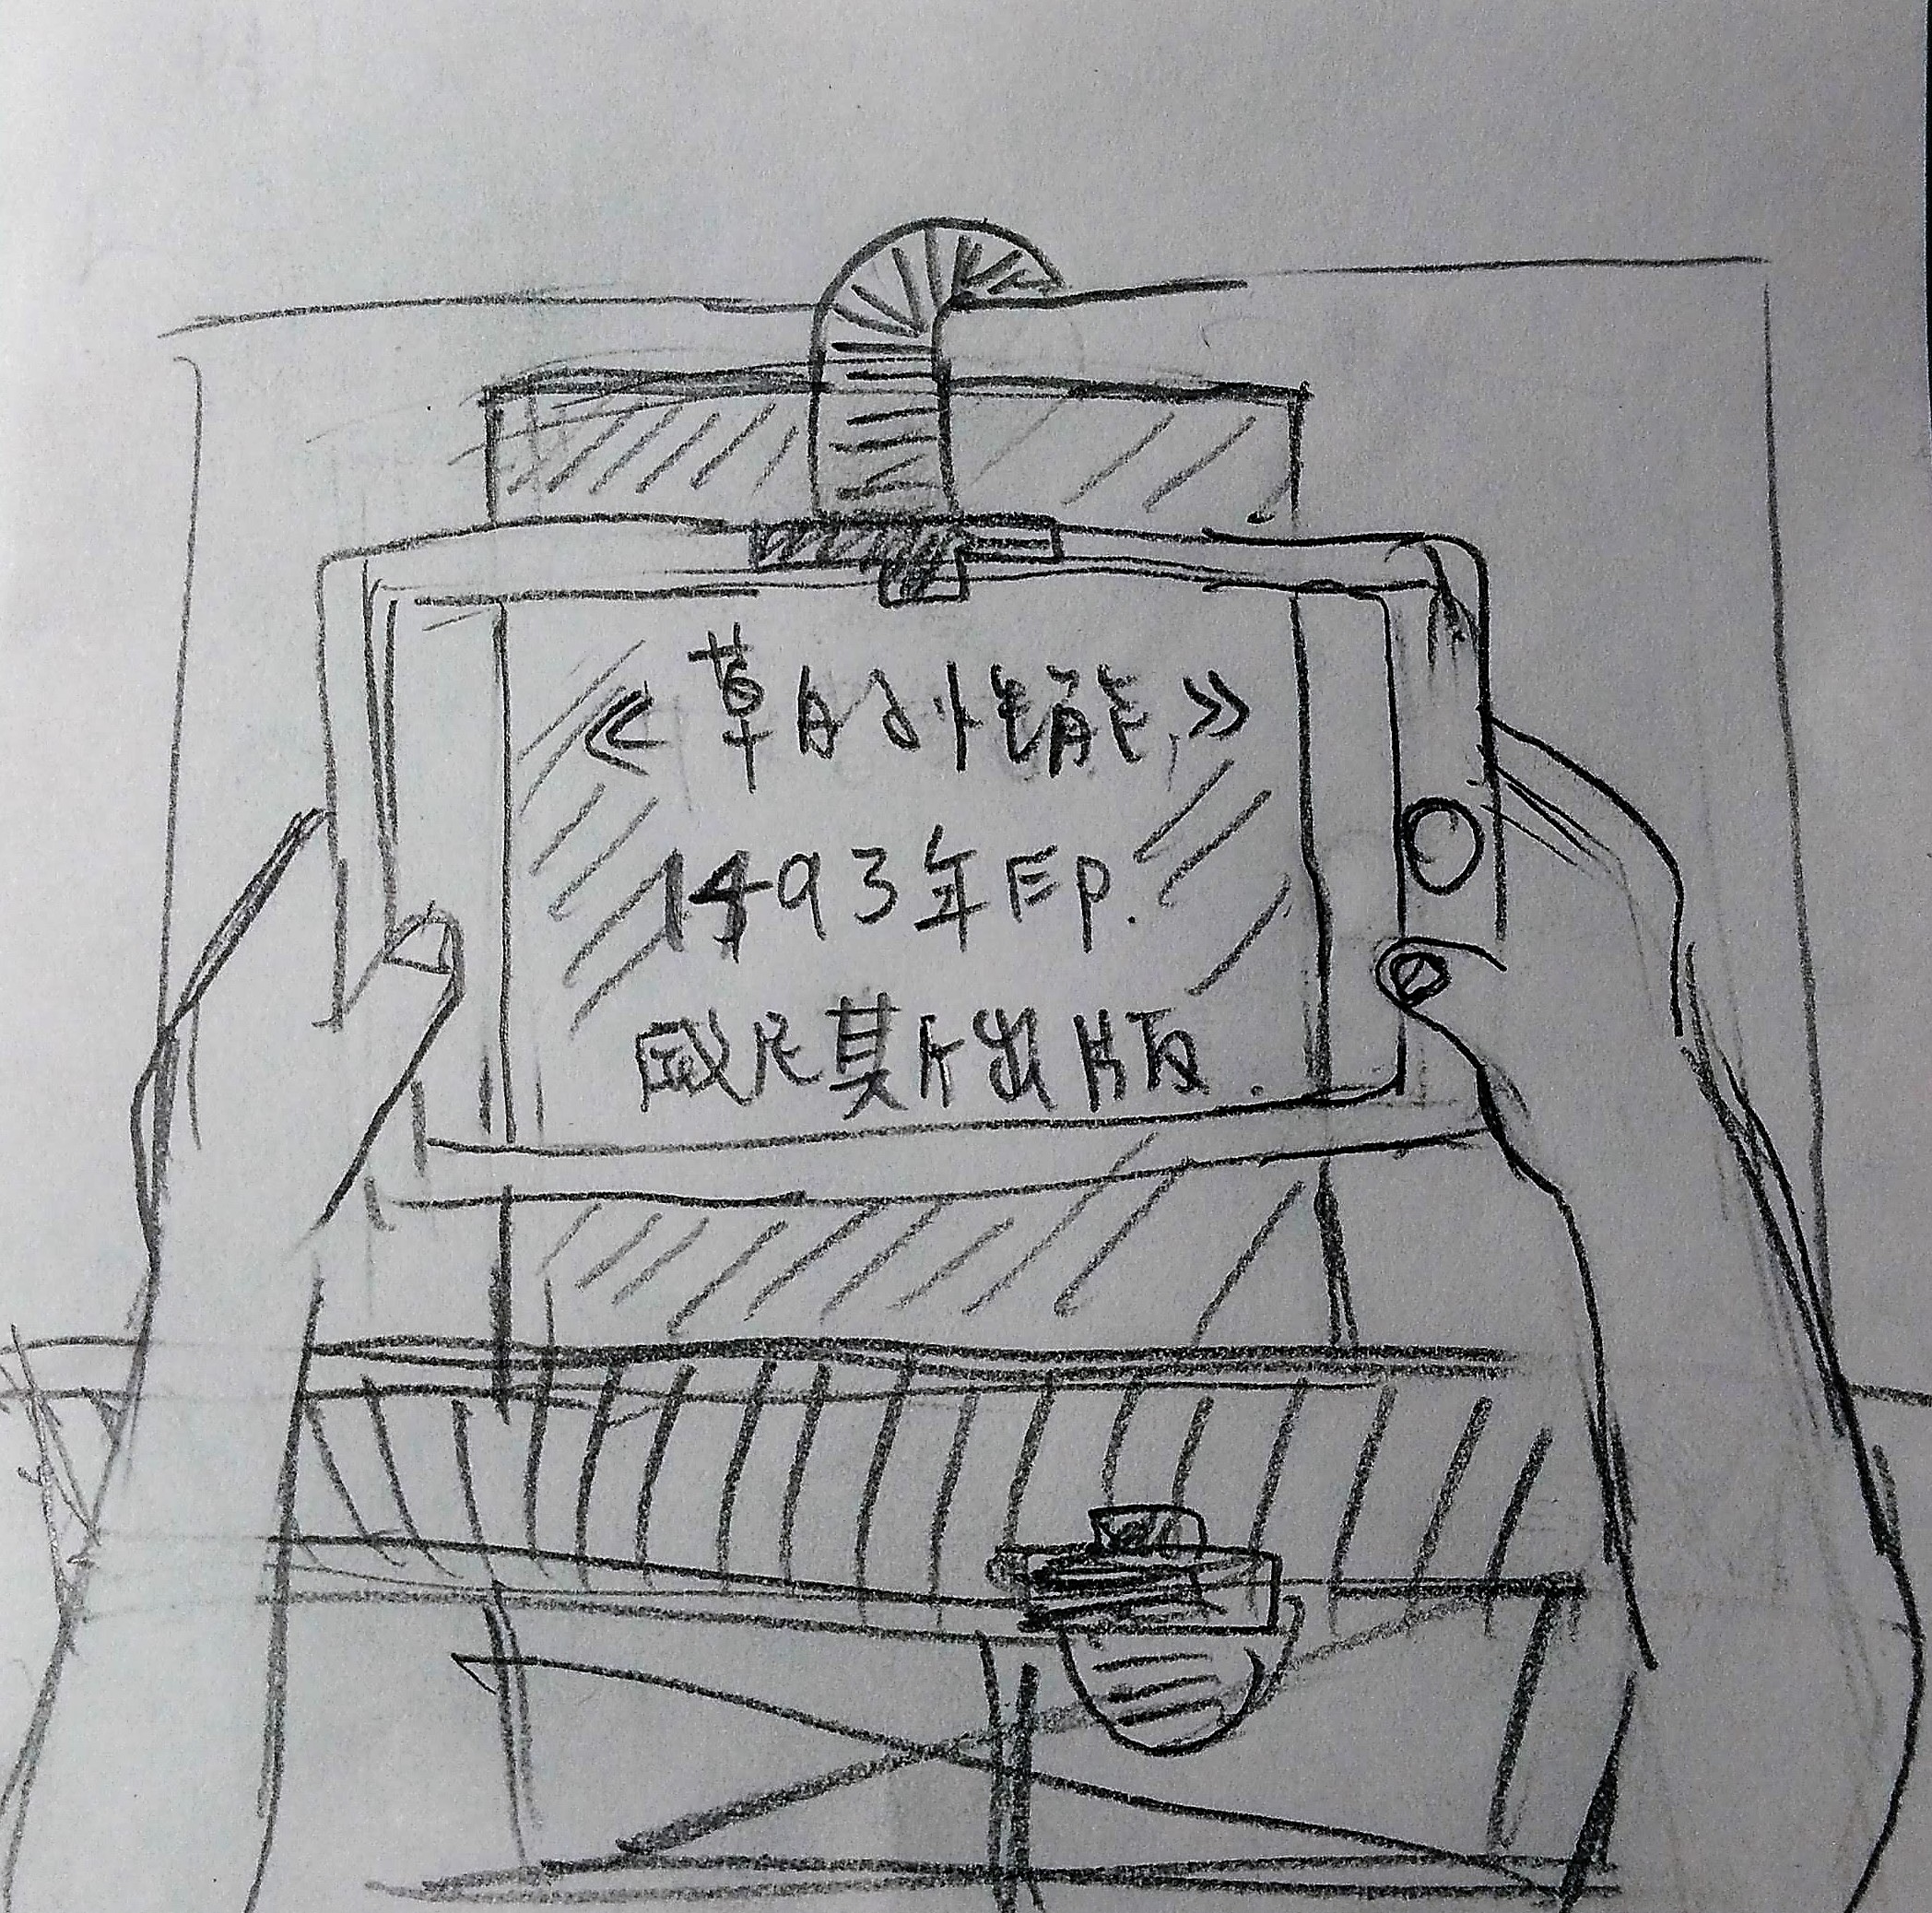 《草的小性能》
1493年印.
威尼斯出版.